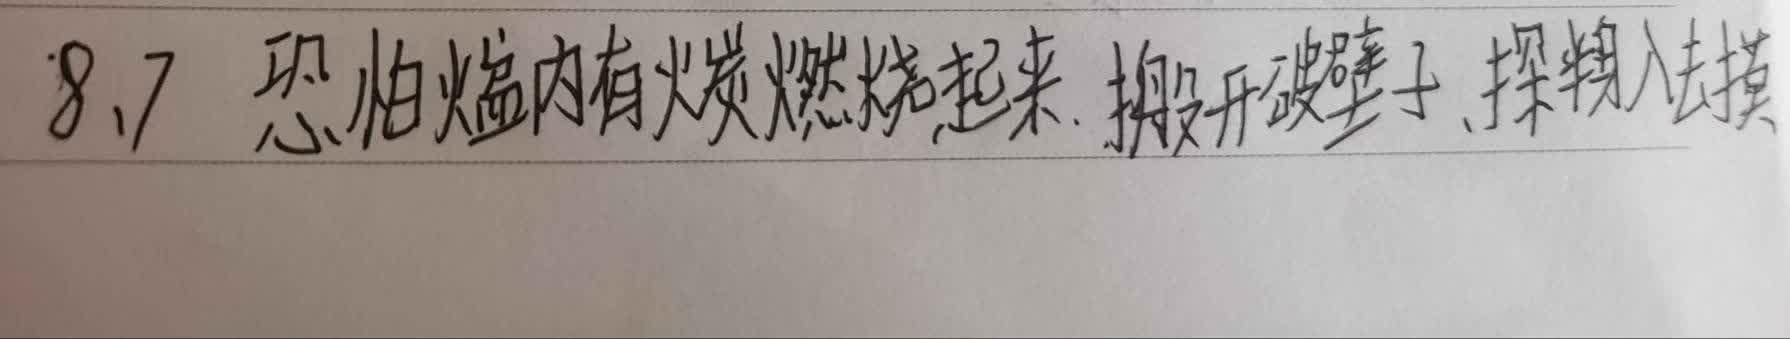 8、7 恐怕煴内有火炭燃烧起来.搬开破壁子、探身入去摸